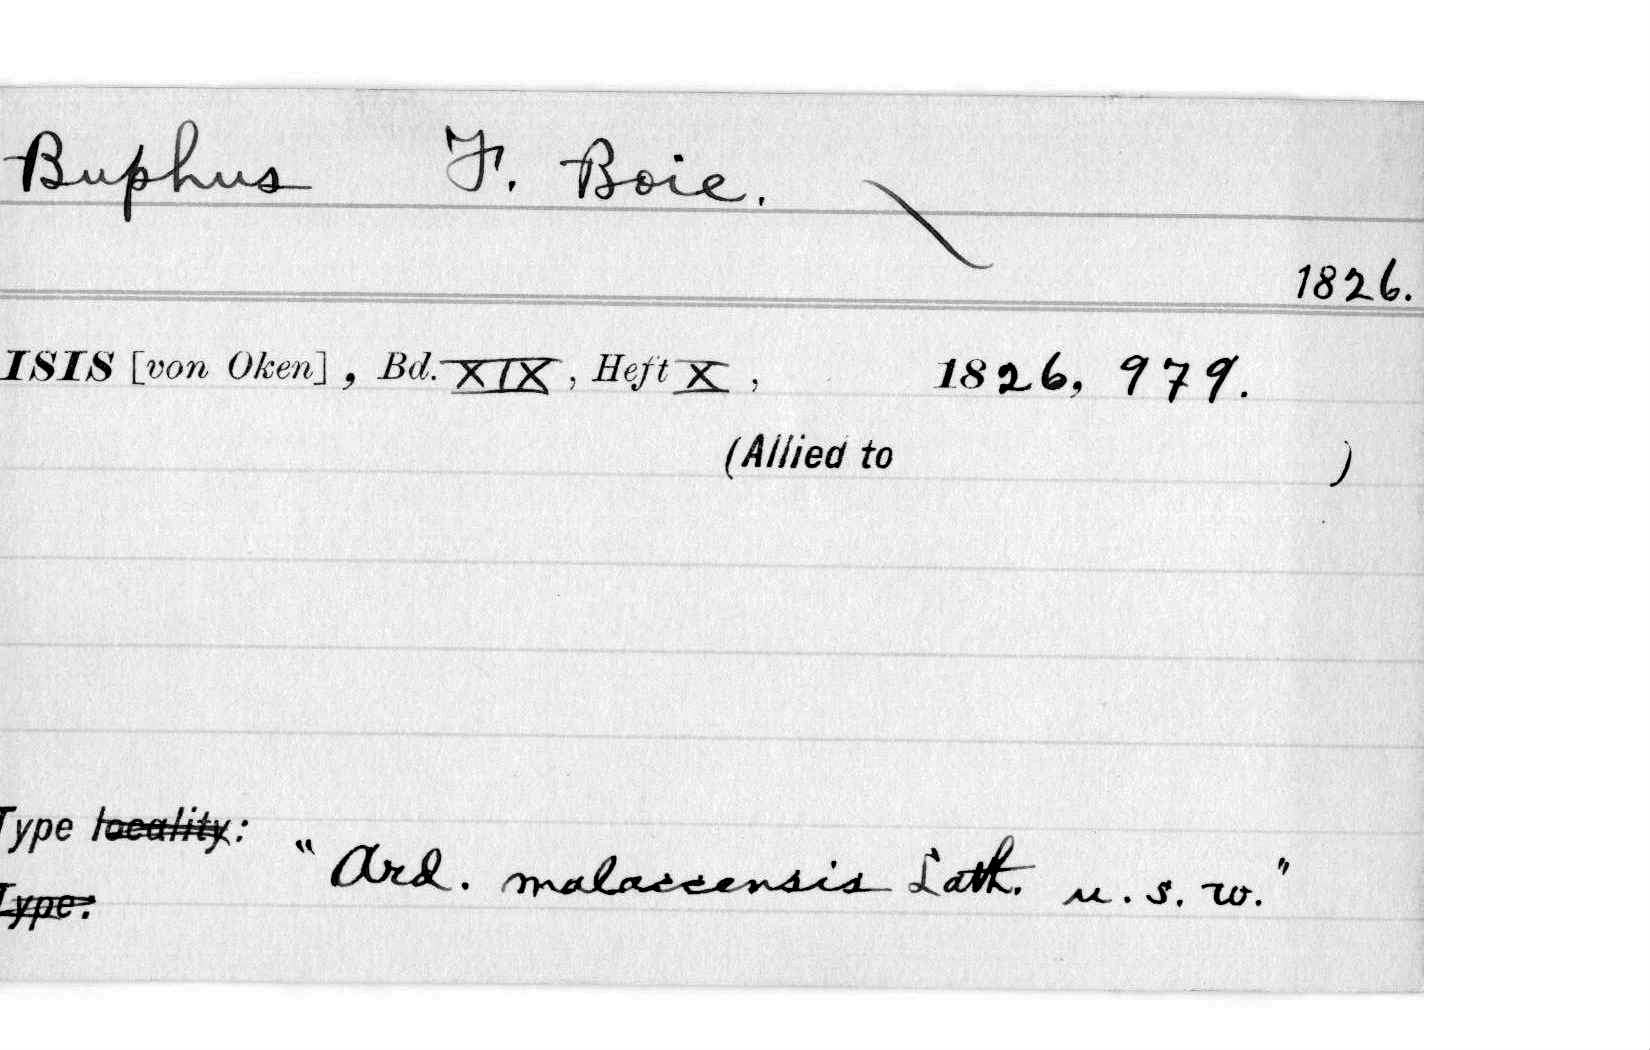 Buphus F. Boie.
1826.
ISIS [von Oken], Bd. XIX, Heft X, 1826, 979.
(Allied to )
Type locality:
"Ard. malaccensis Lath. u.s.w."
Type: